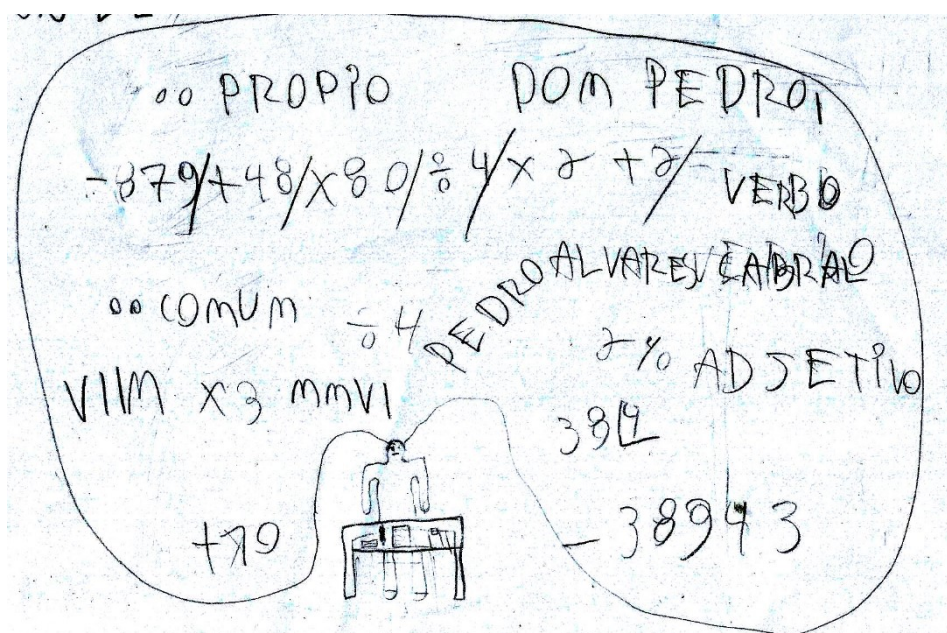 .. PROPIO DOM PEDRO,
-879/+48/×80/÷4/×2 +2/- VERBO
PEDRO ALVARES CABRAL
.. COMUM ÷4
2% ADJETIVO
VIIM ×3 MMVI
38⌊4
+79 -38943